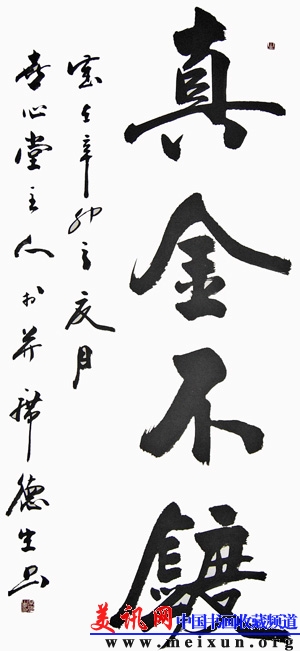 真金不鍍
辛卯夏月
心堂主人於并 德生书
美讯网 中国书画收藏频道
www.meixun.org